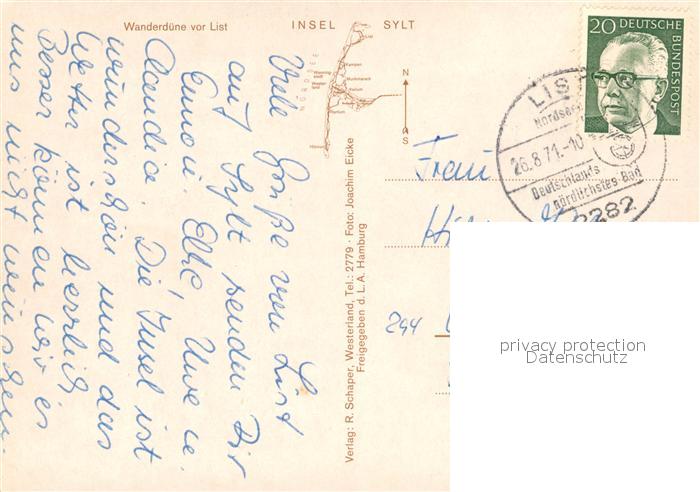 Wanderdüne vor List
INSEL SYLT
Viele Grüße von List
auf Sylt senden Dir
Elke, Uwe u.
Claudia. Die Insel ist
wunderschön und das
Wetter ist herrlich.
Besser können wir es
uns nicht wünschen.
Verlag: R. Schaper, Westerland, Tel.: 2779 · Foto: Joachim Eicke
Freigegeben d. L.A. Hamburg
N
S
20 DEUTSCHE
BUNDESPOST
LIST
Nordsee
26.8.71.-10
Deutschlands
nördlichstes Bad
2282
Frau
244
privacy protection
Datenschutz